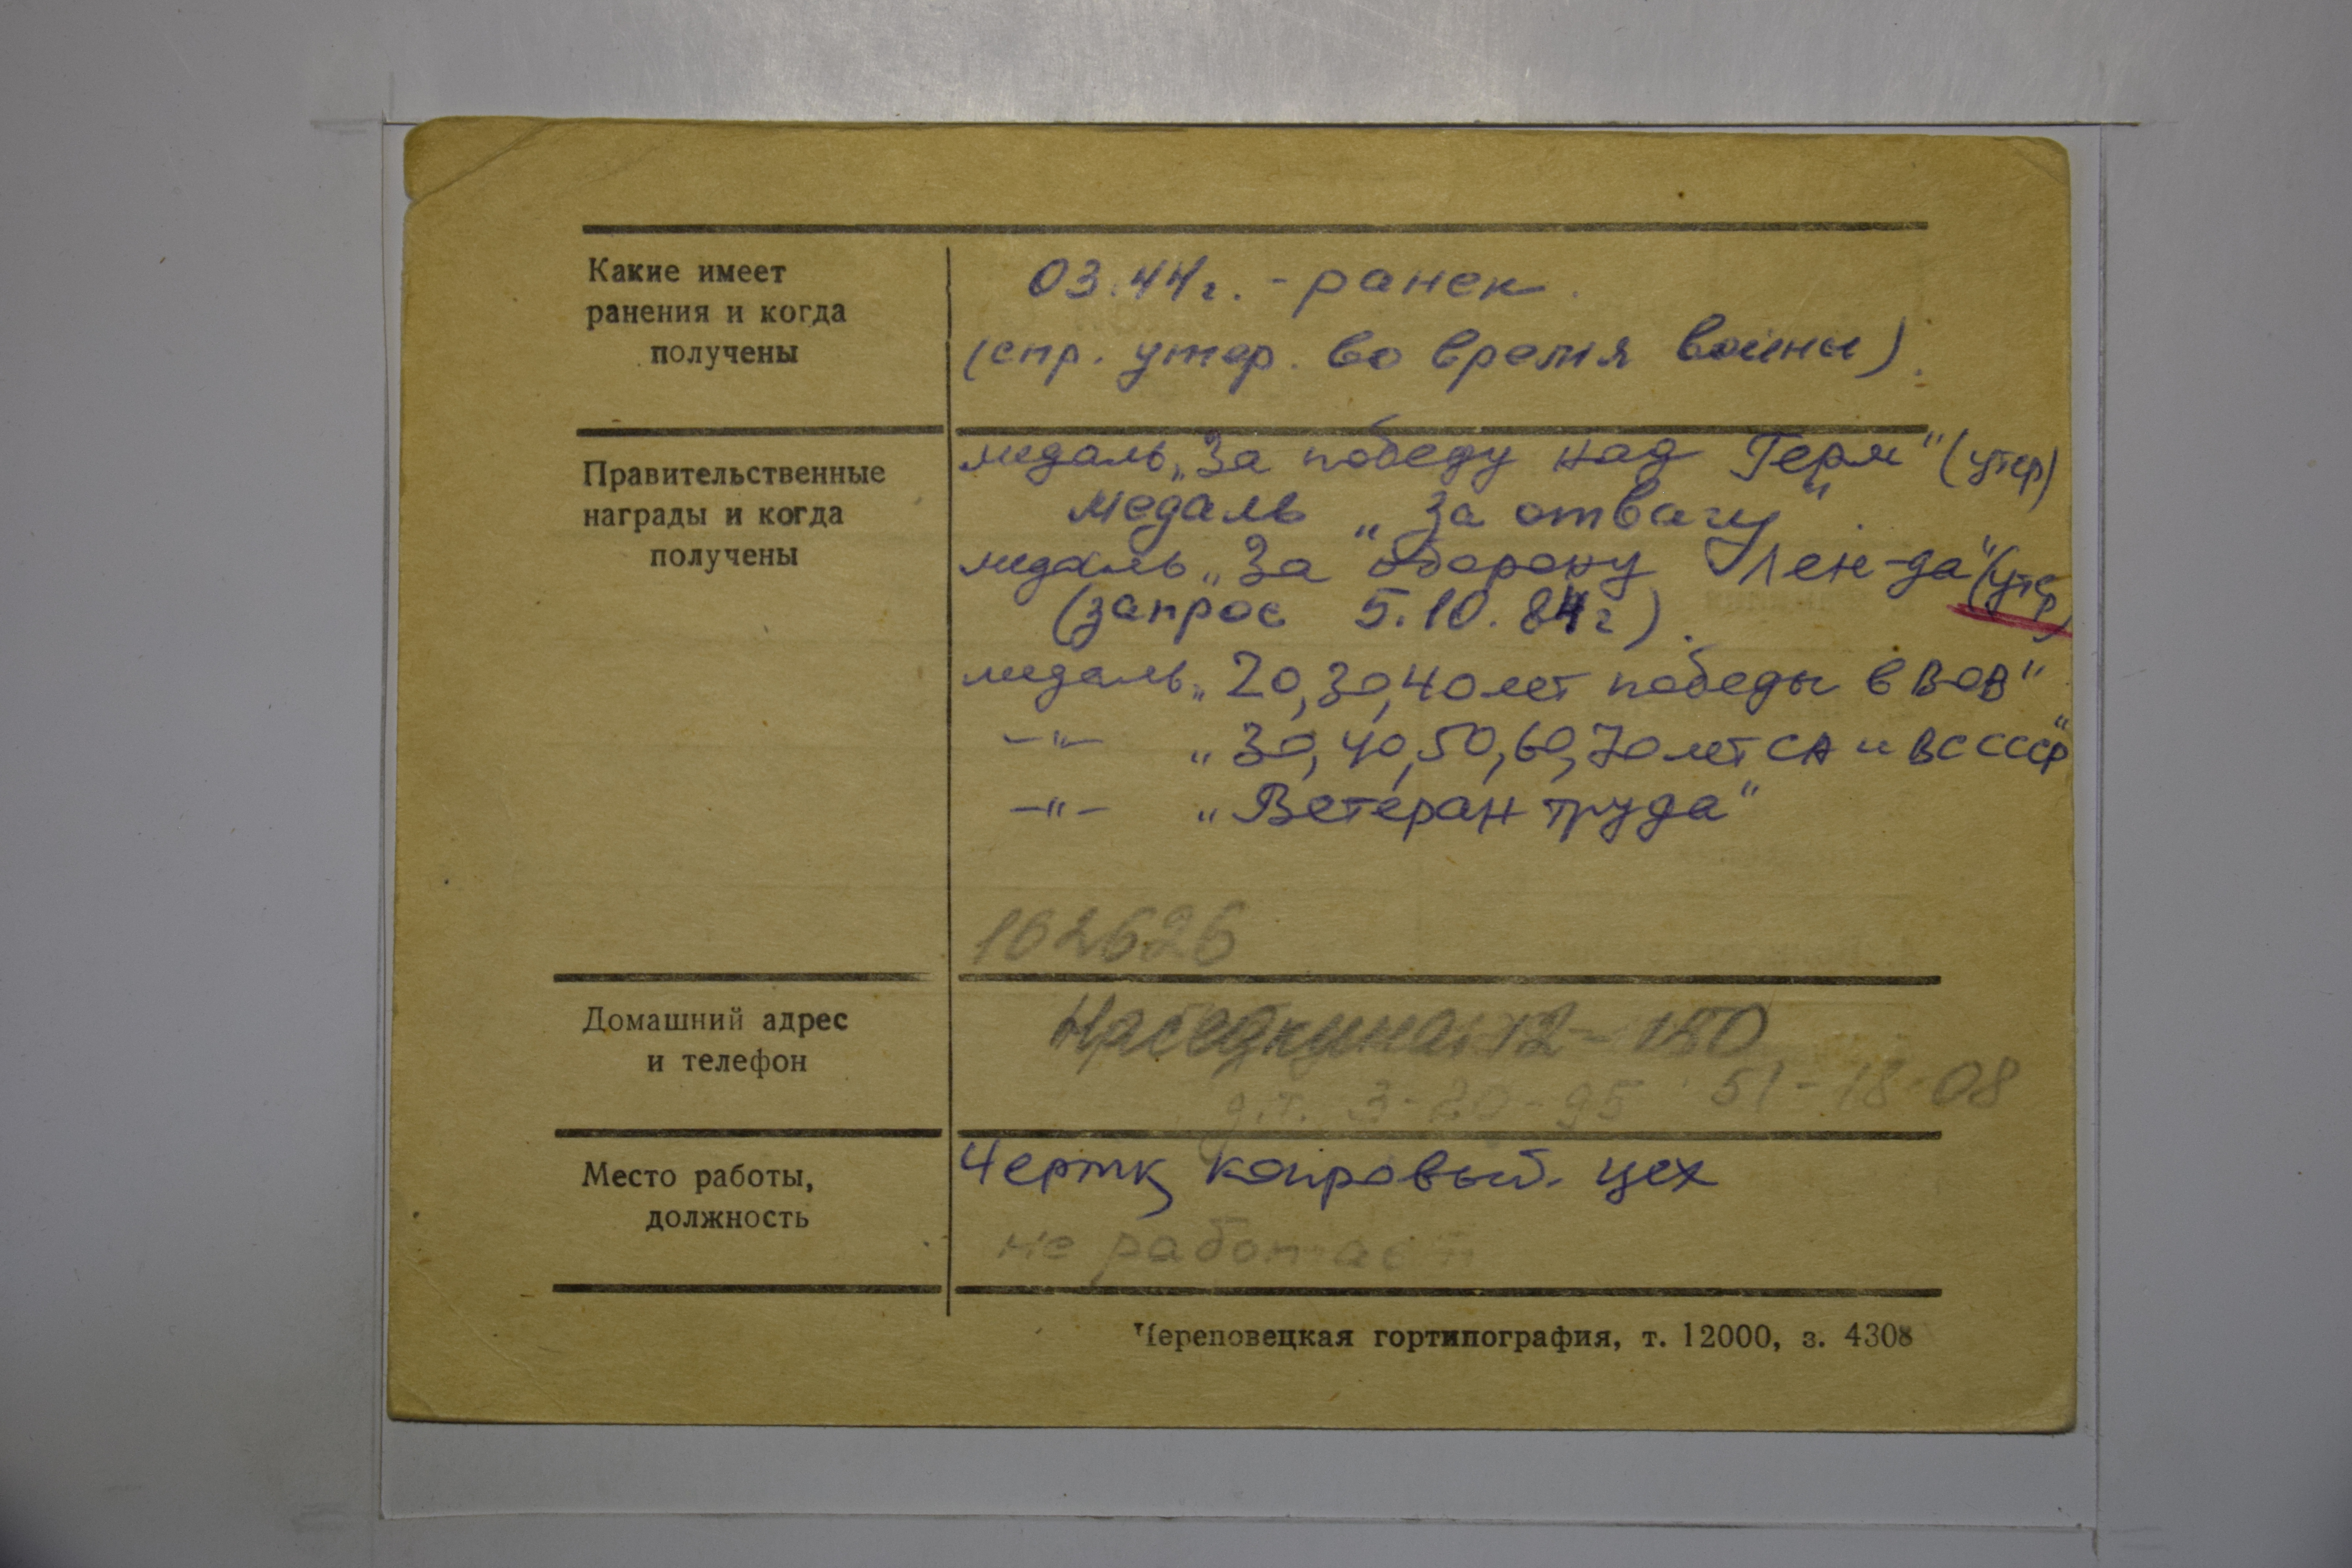 Какие имеет
ранения и когда
получены
03.44г. - ранен.
(спр. утер. во время войны).
Правительственные
награды и когда
получены
медаль „За победу над Герм" (утер)
медаль „За отвагу".
медаль „За оборону Лен-да" (утер)
(запрос 5.10.84г).
медаль „20,30,40 лет победы в ВОВ"
-"- „30,40,50,60,70 лет СА и ВС СССР"
-"- „Ветеран труда"
162626
Домашний адрес
и телефон
Наседкина 12-150
д.т. 3-20-95 51-18-08
Место работы,
должность
Чермк, копровый. цех
не работает
Череповецкая гортипография, т. 12000, з. 4308